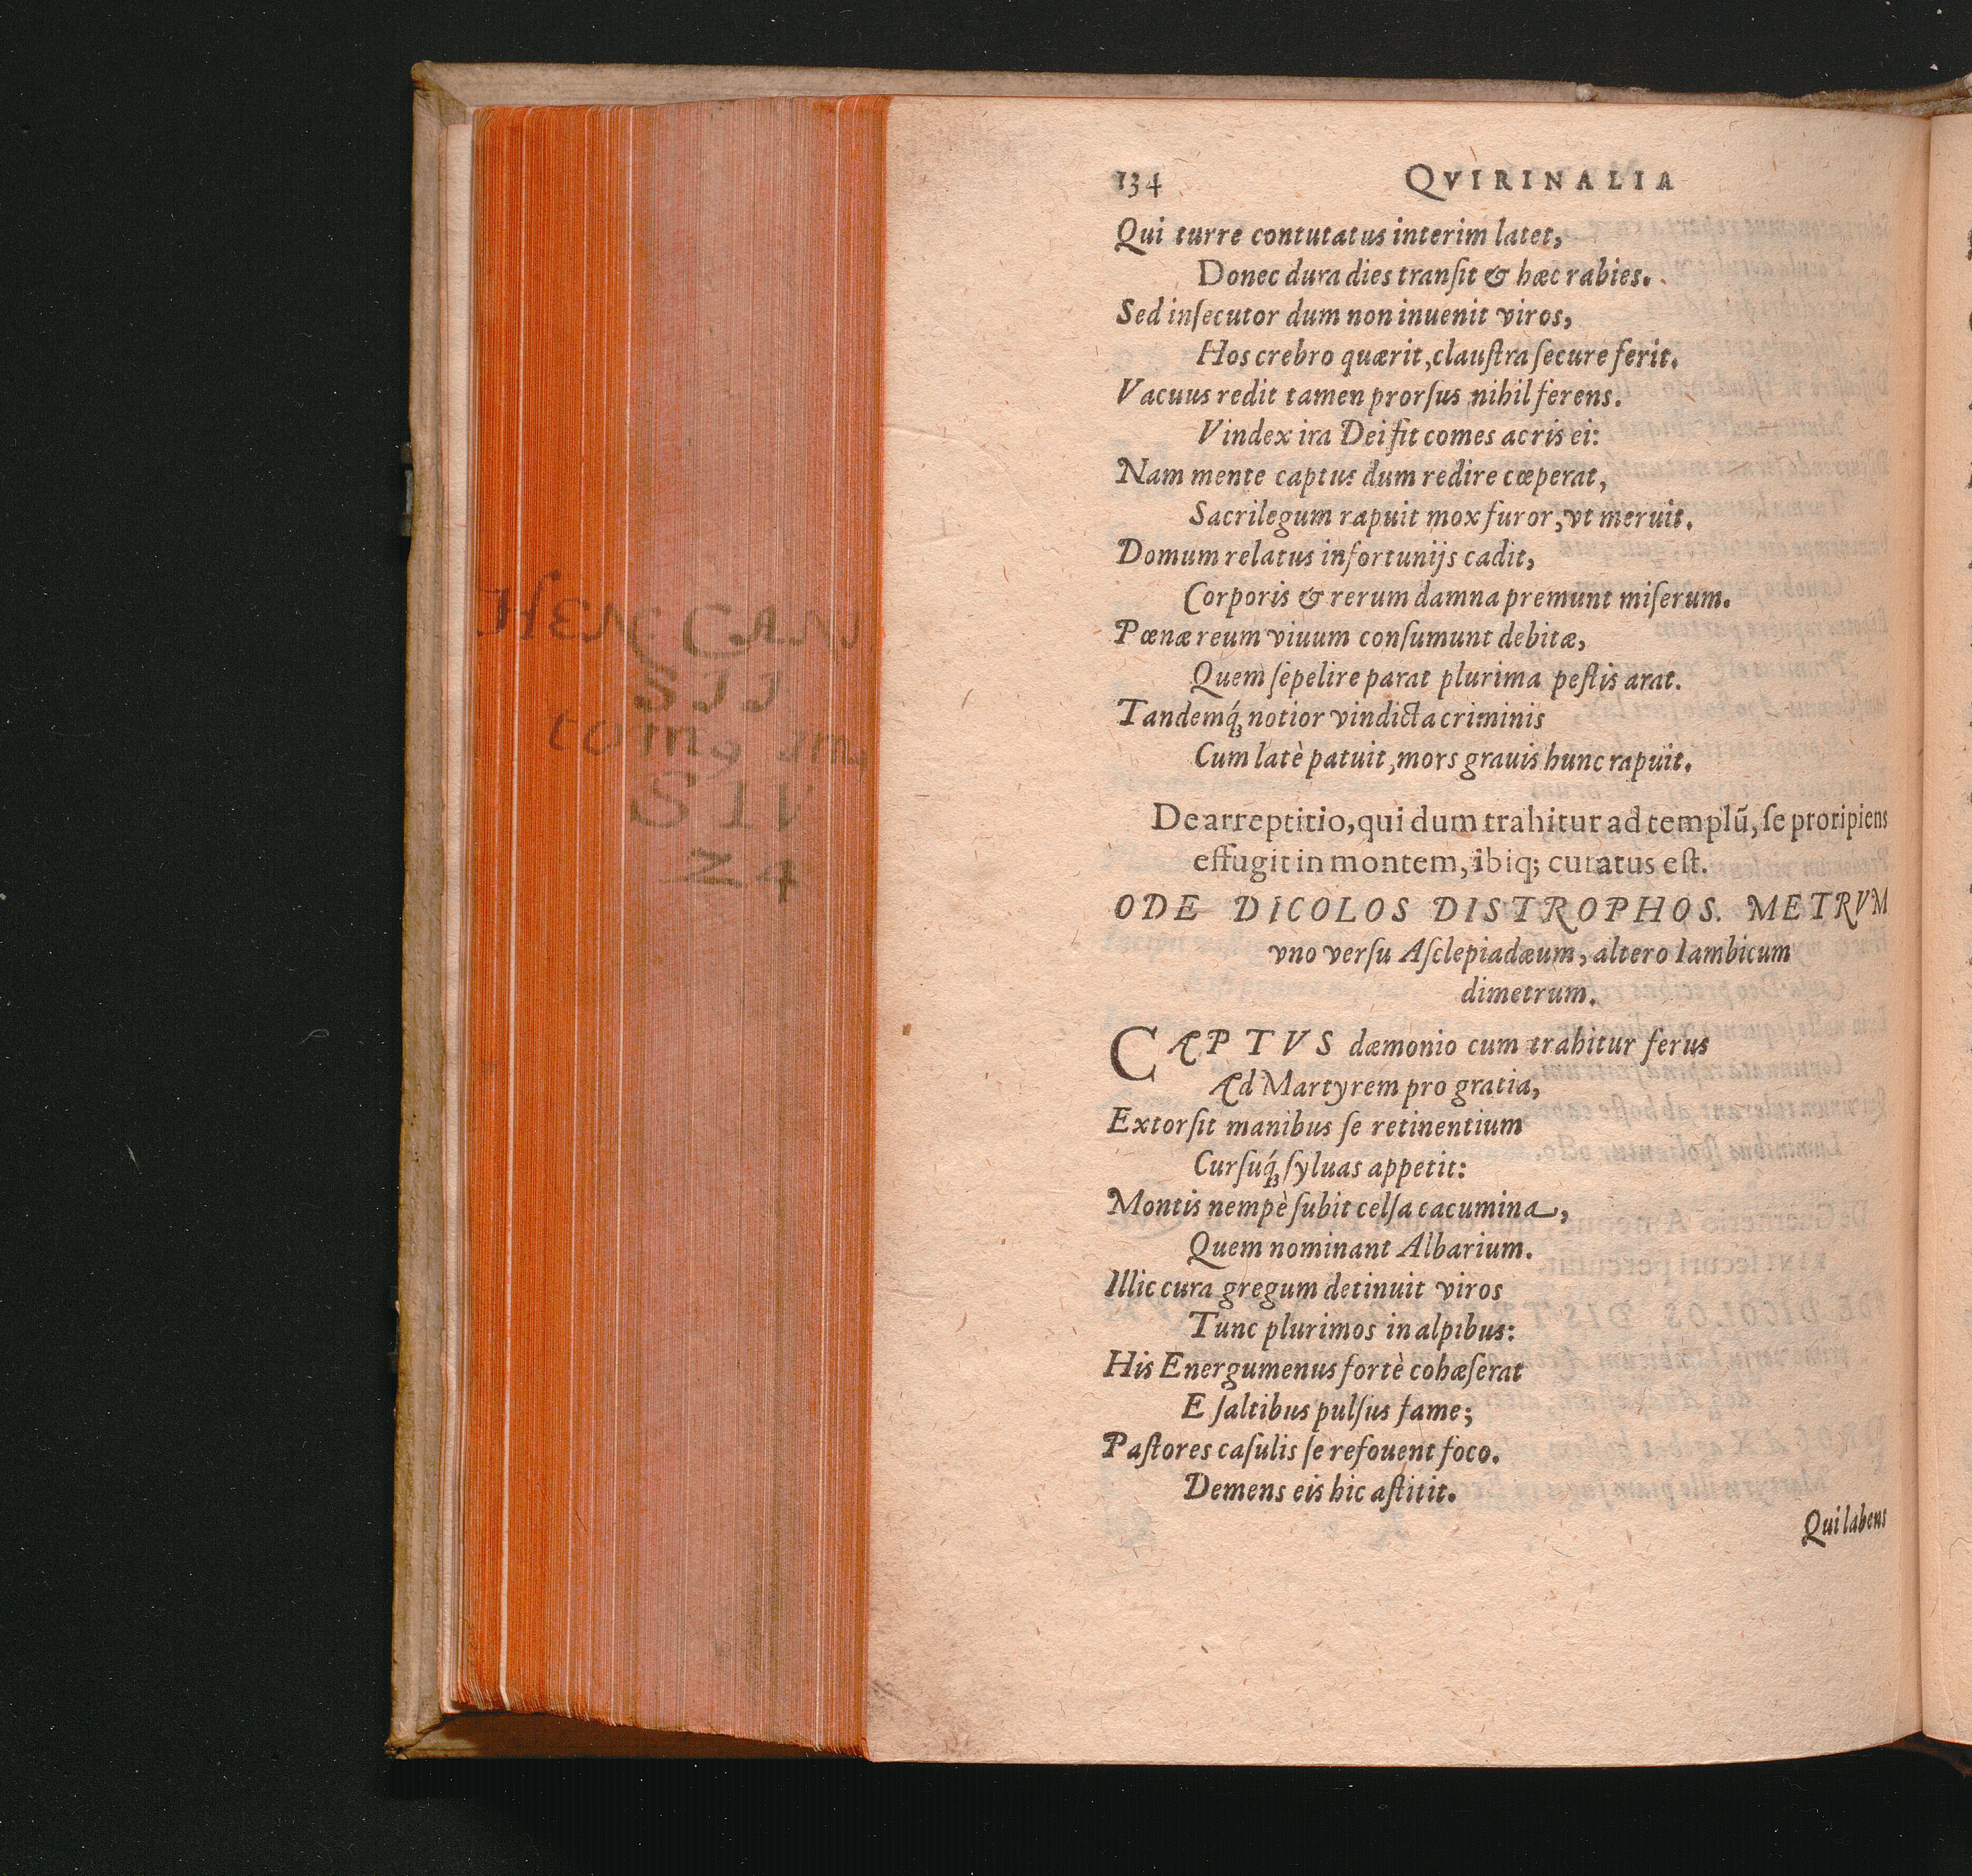 134 QVIRINALIA
Qui turre contutatus interim latet,
Donec dura dies tranſit & hæc rabies.
Sed inſecutor dum non inuenit viros,
Hos crebro quærit, clauſtra ſecure ferit.
Vacuus redit tamen prorſus nihil ferens.
Vindex ira Dei fit comes acris ei:
Nam mente captus dum redire cœperat,
Sacrilegum rapuit mox furor, vt meruit.
Domum relatus infortunijs cadit,
Corporis & rerum damna premunt miſerum.
Pœnæ reum viuum conſumunt debitæ,
Quem ſepelire parat plurima peſtis arat.
Tandemq́ꝫ notior vindicta criminis
Cum latè patuit, mors grauis hunc rapuit.
De arreptitio, qui dum trahitur ad templū, ſe proripiens
effugit in montem, ibiq; curatus eſt.
ODE DICOLOS DISTROPHOS. METRVM
vno verſu Aſclepiadæum, altero Iambicum
dimetrum.
CAPTVS dæmonio cum trahitur ferus
Ad Martyrem pro gratia,
Extorſit manibus ſe retinentium
Curſuq́ꝫ ſyluas appetit:
Montis nempè ſubit celſa cacumina,
Quem nominant Albarium.
Illic cura gregum detinuit viros
Tunc plurimos in alpibus:
His Energumenus fortè cohæſerat
E ſaltibus pulſus fame;
Paſtores caſulis ſe refouent foco.
Demens eis hic aſtitit.
Qui labens
HEN CAN
SII
tomꝰ
S IV
Z4